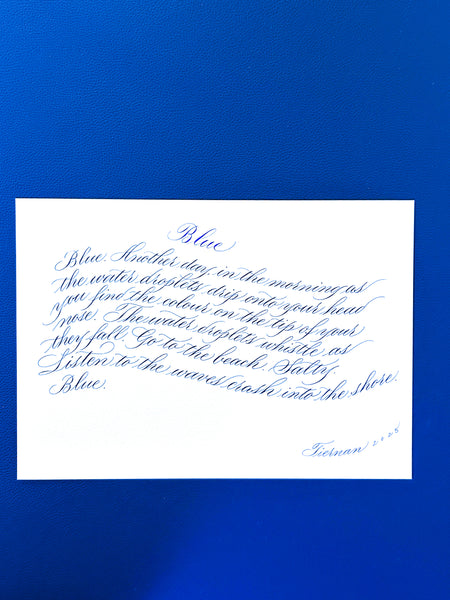 Blue
Blue. Another day in the morning as
the water droplets drip onto your head
you find the colour on the tip of your
nose. The water droplets whistle as
they fall. Go to the beach. Salty
Listen to the waves crash into the shore.
Blue.
Tiernan 2025